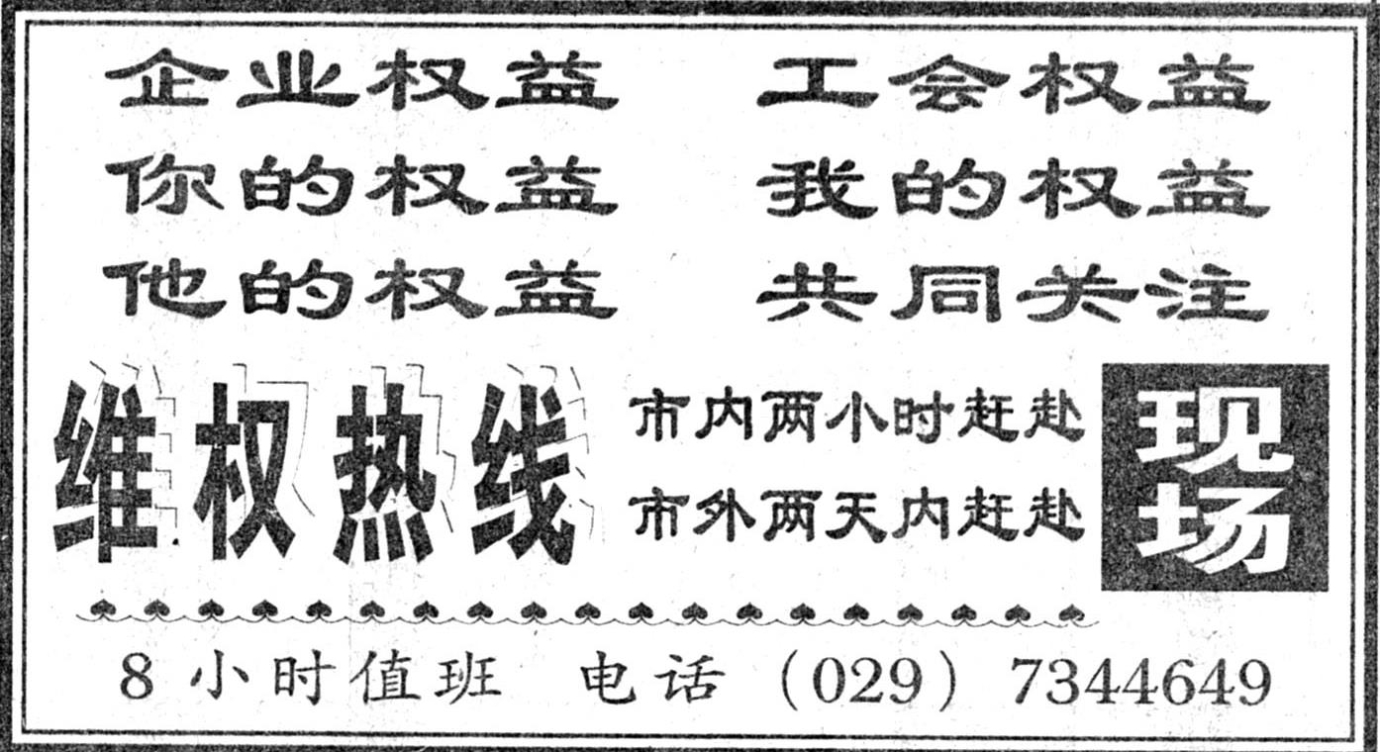 企业权益 工会权益
你的权益 我的权益
他的权益 共同关注
维权热线
市内两小时赶赴
市外两天内赶赴
现场
8小时值班 电话（029）7344649